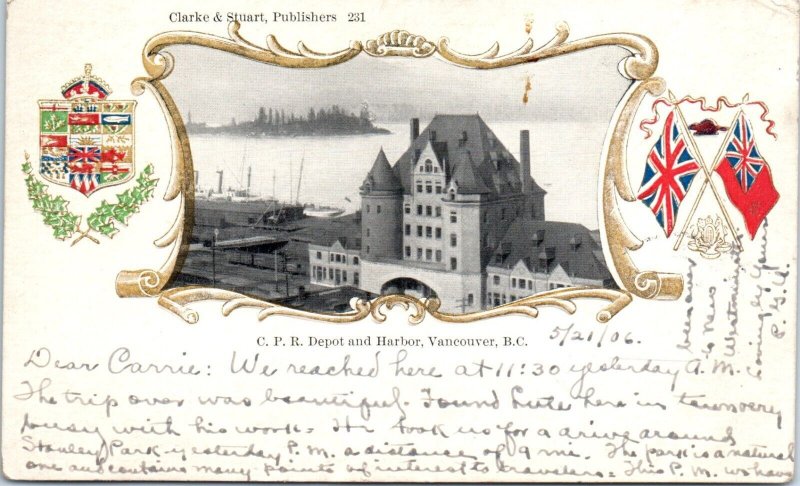 Clarke & Stuart, Publishers 231
C. P. R. Depot and Harbor, Vancouver, B.C. 5/21/06.
Dear Carrie: We reached here at 11:30 yesterday A.M.
The trip over was beautiful. Found Lute here in town very
busy with his work = He took us for a drive around
Stanley Park yesterday P.M. a distance of 9 mi. The park is a natural
one and contains many points of interest to travelers = This P.M. we have
been over
to New
Westminster